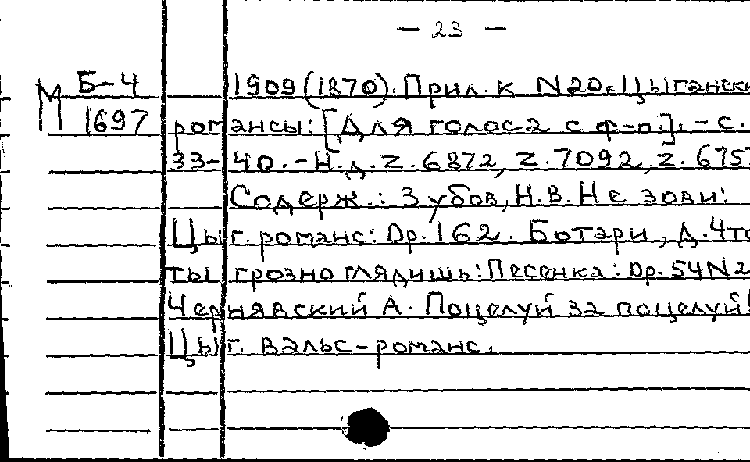 — 23 —
Б-4 1909(1870). Прил. к N20. Цыгански
М 1697 романсы: [Для голоса с ф-п.]. - с.
33-40. - Н.д. Z.6872, Z.7092, Z.675
Содерж.: Зубов, Н.В. Не зови:
Цыг. романс: Op.162. Ботэри, Д. Что
ты грозно глядишь: Песенка: Op.54N2
Чернявский А. Поцелуй за поцелуй!
Цыг. вальс-романс.